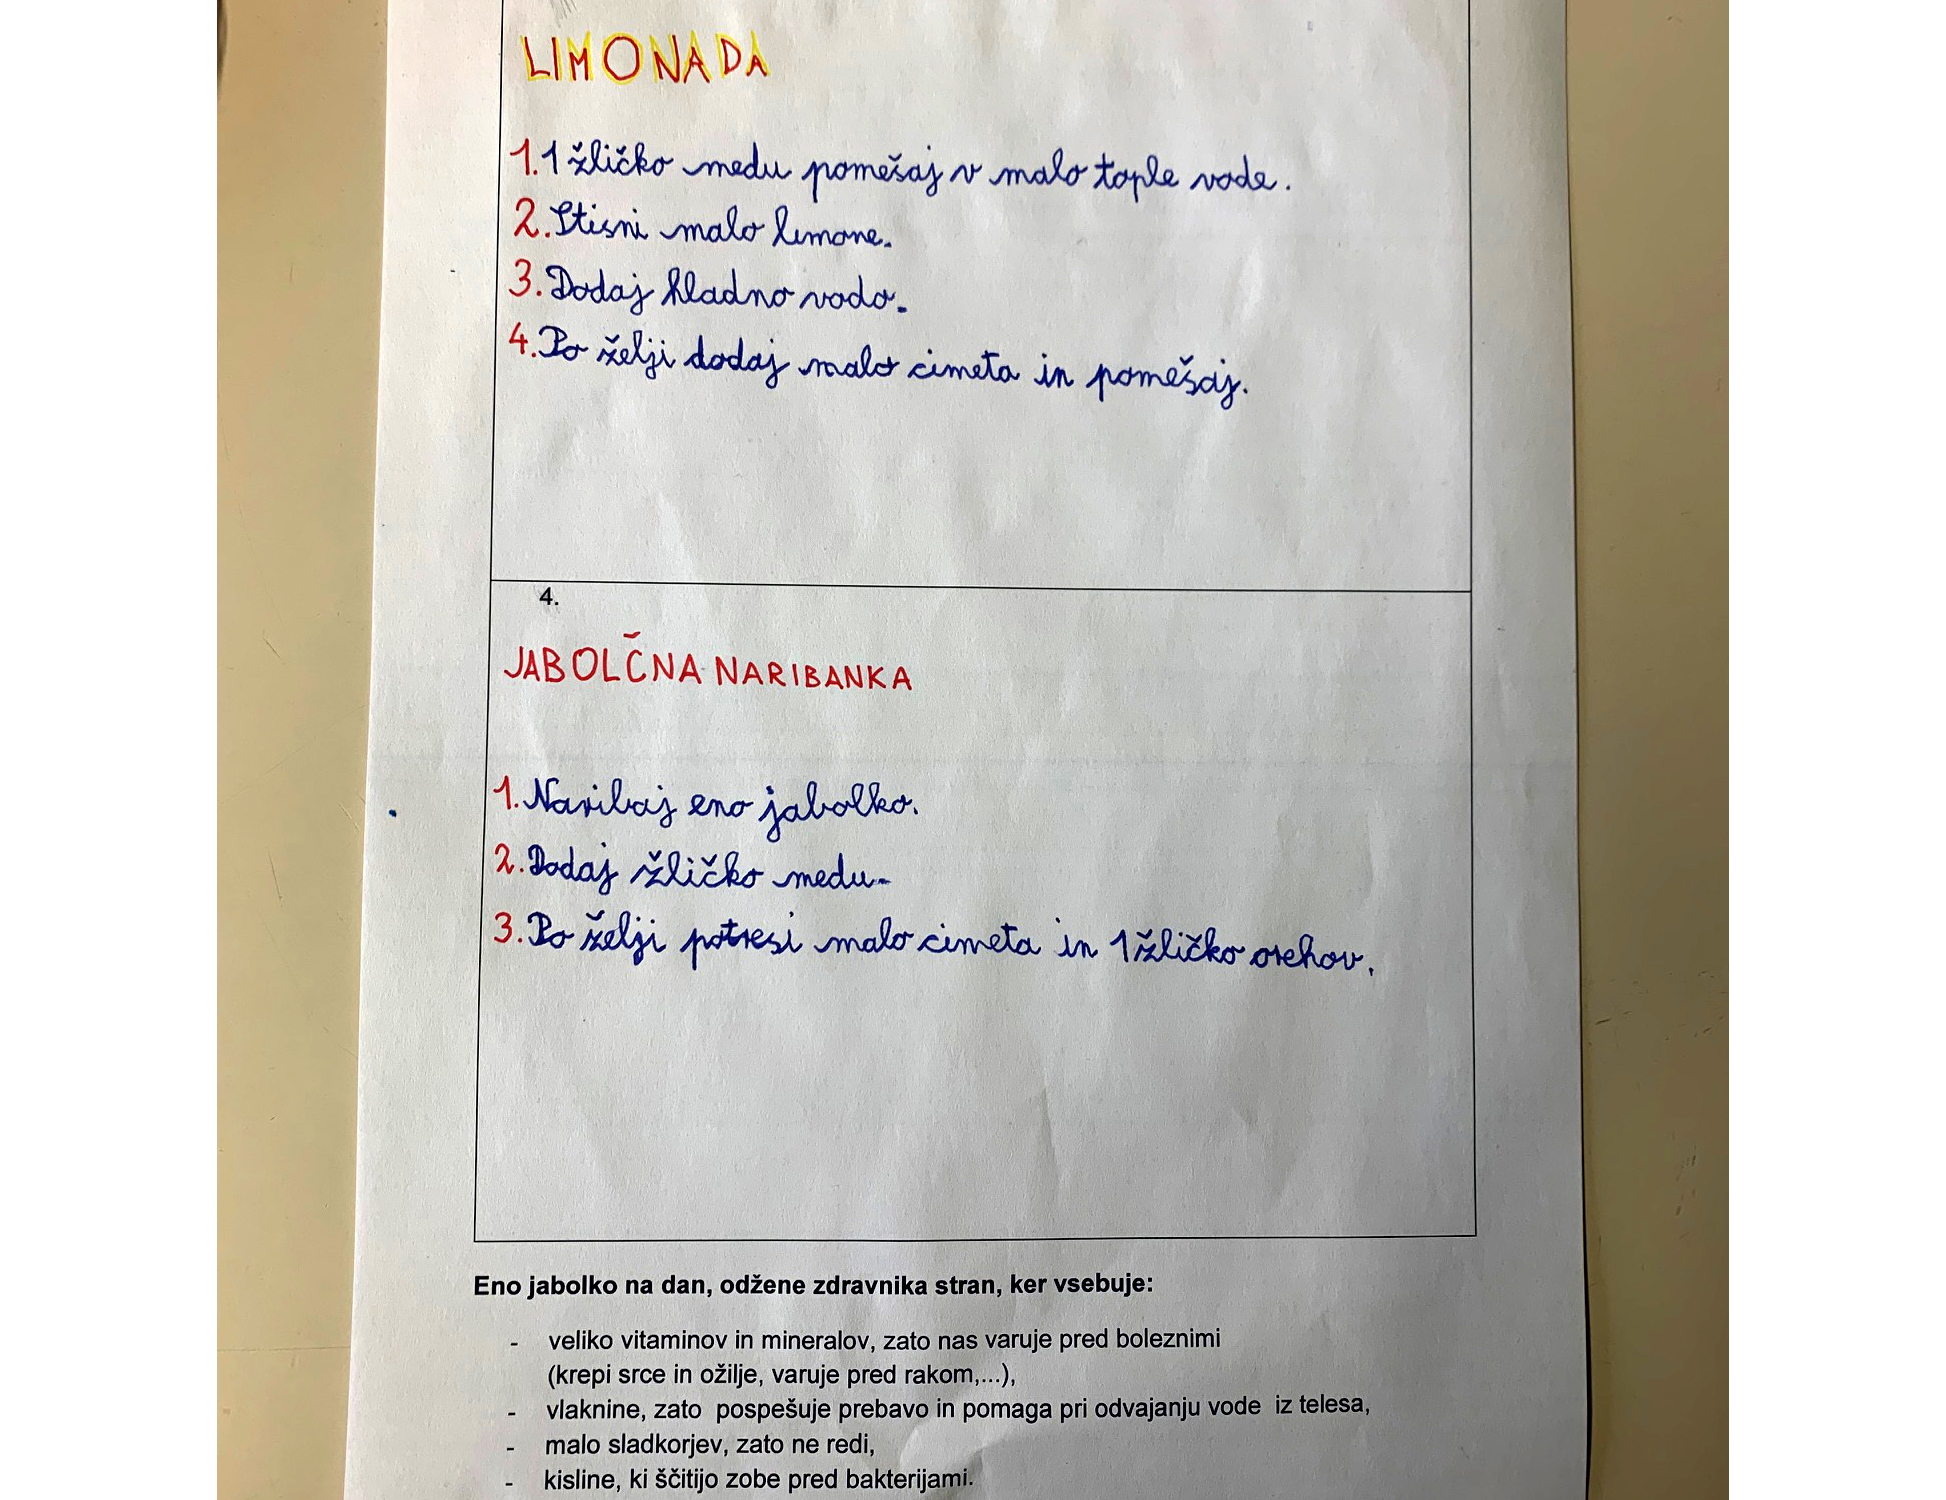 LIMONADA
1. 1 žličko medu pomešaj v malo tople vode.
2. Stisni malo limone.
3. Dodaj hladno vodo.
4. Po želji dodaj malo cimeta in pomešaj.
4.
JABOLČNA NARIBANKA
1. Naribaj eno jabolko.
2. Dodaj žličko medu.
3. Po želji potresi malo cimeta in 1 žličko orehov.
Eno jabolko na dan, odžene zdravnika stran, ker vsebuje:
- veliko vitaminov in mineralov, zato nas varuje pred boleznimi
(krepi srce in ožilje, varuje pred rakom,...),
- vlaknine, zato pospešuje prebavo in pomaga pri odvajanju vode iz telesa,
- malo sladkorjev, zato ne redi,
- kisline, ki ščitijo zobe pred bakterijami.